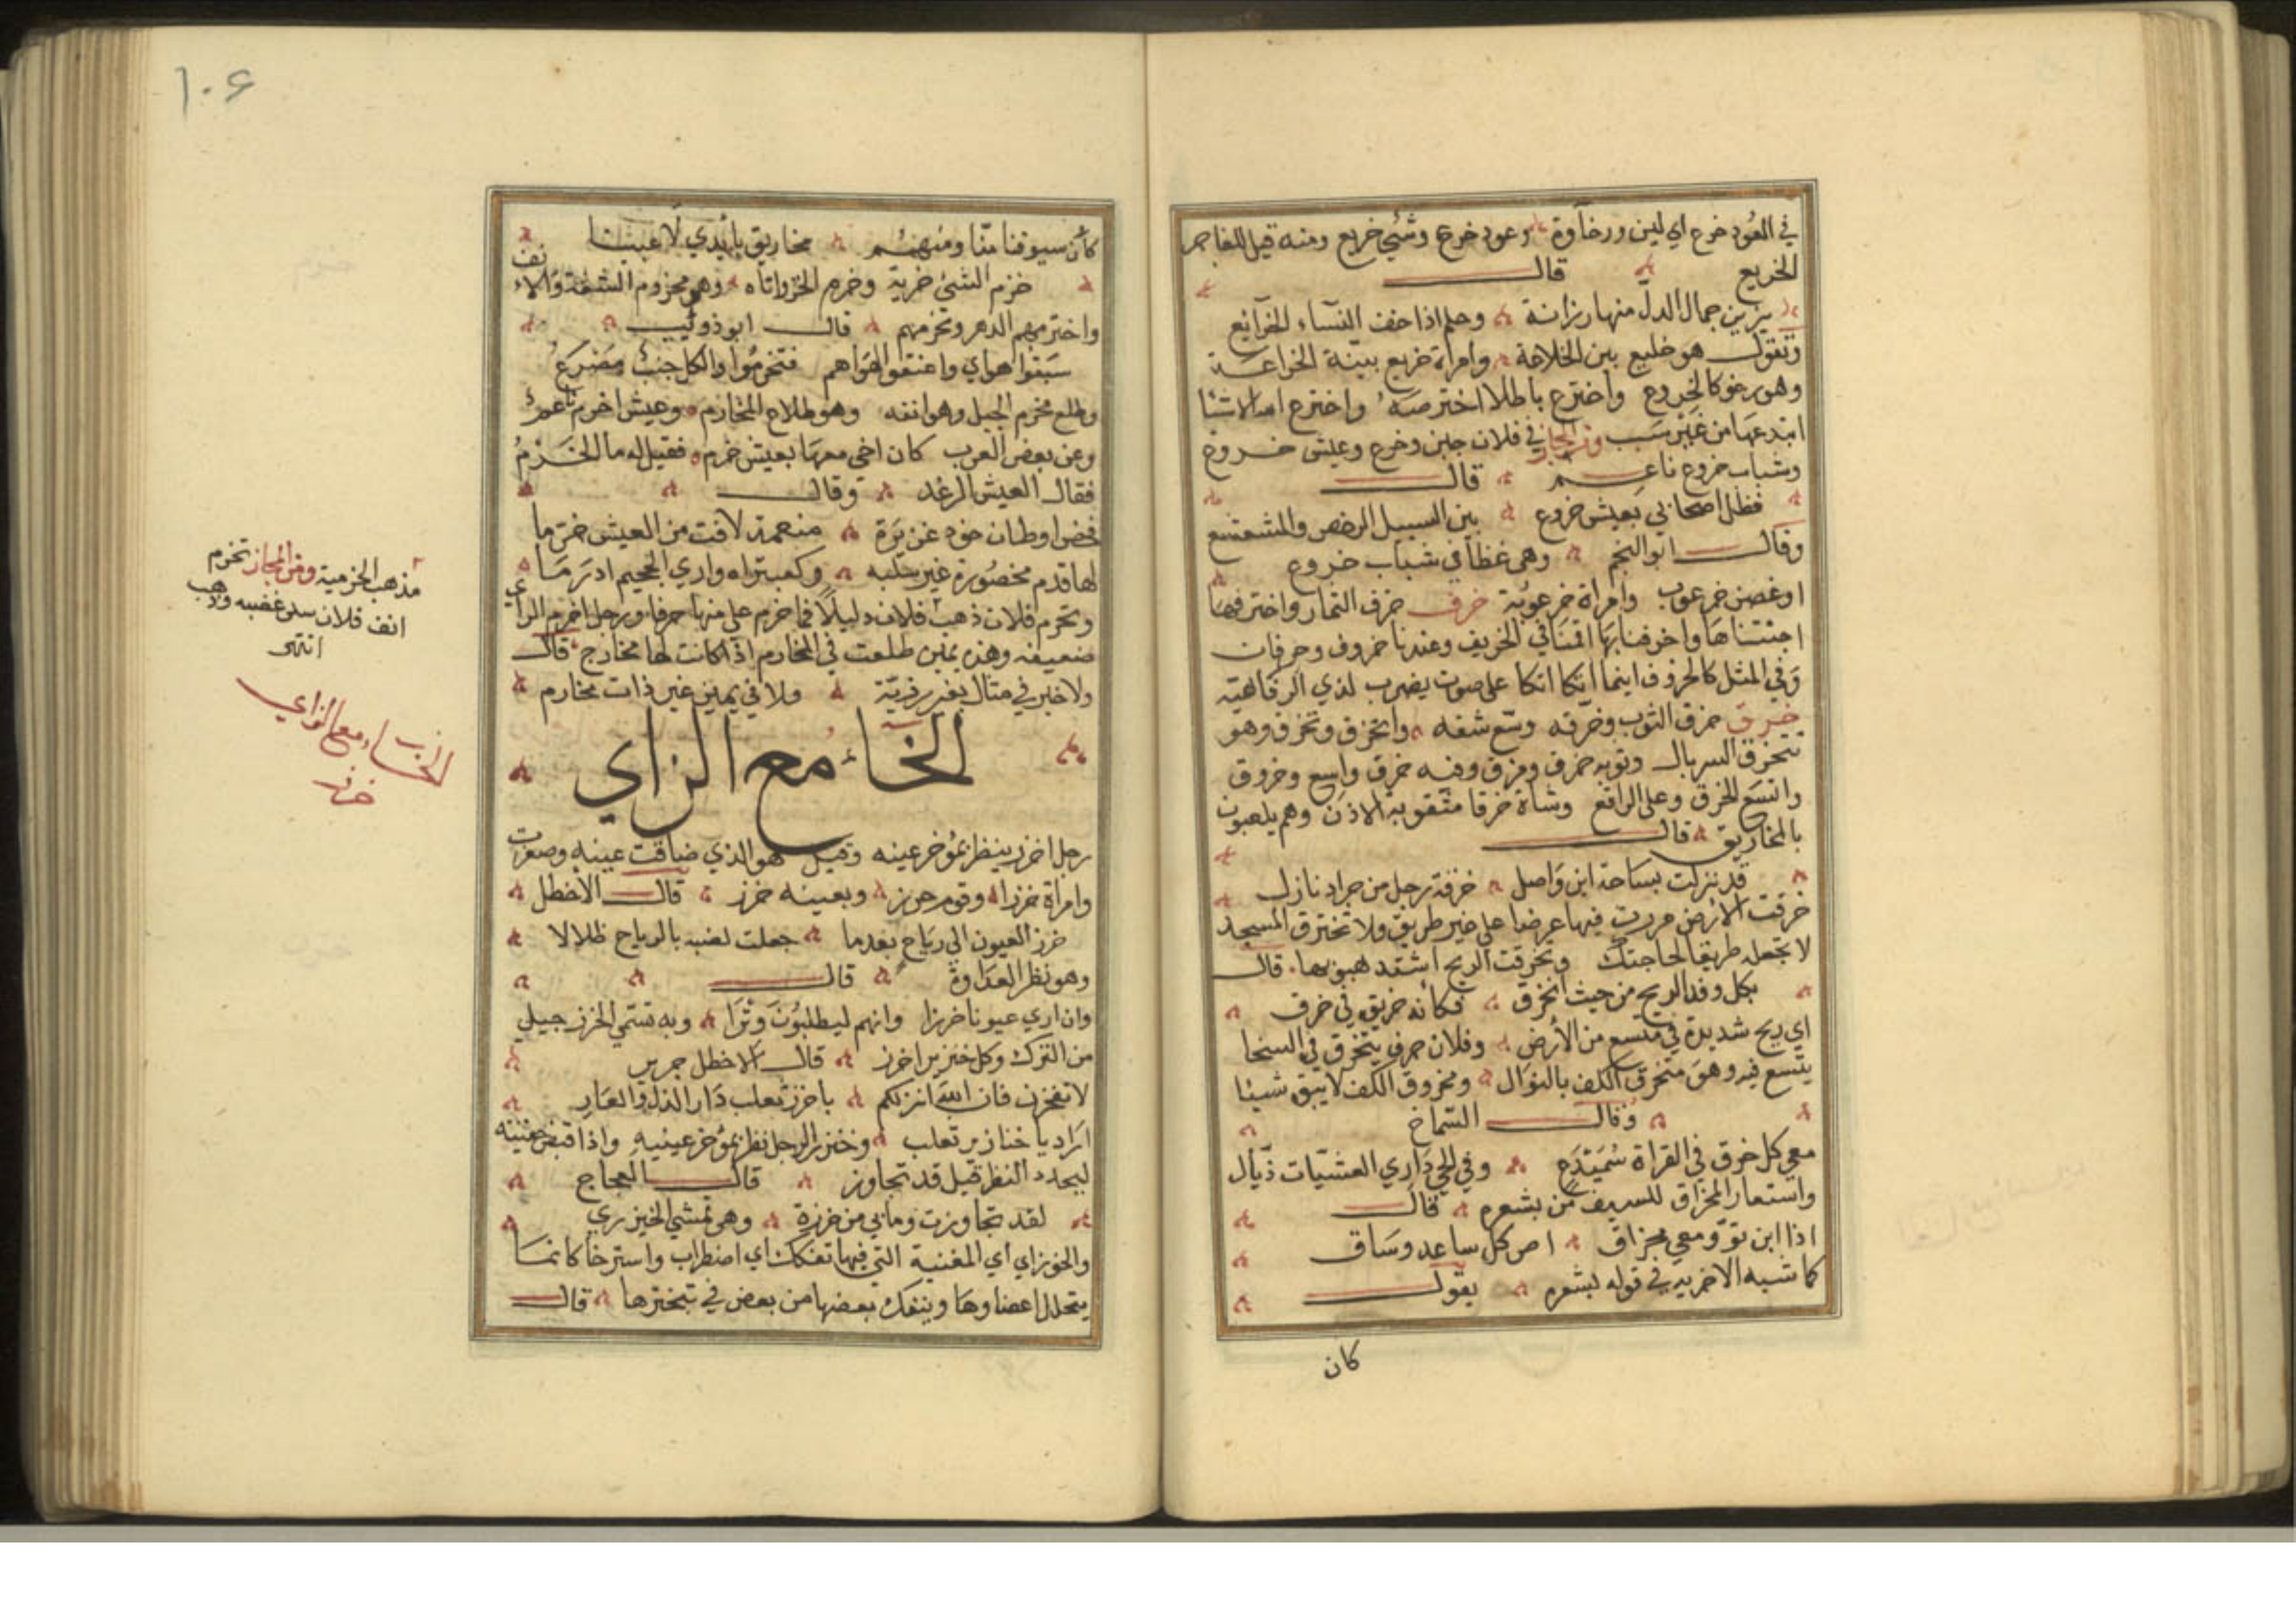 في العُود خرع اي لين ورخاوة وعود خرع وشئ خريع ومنه قيل للفاجر
الخريع قال
يزين جمال الدلّ منها رزانة وحلم اذا خف النساء الخرائع
وتقول هو خليع بين الخلاعة وامراة خريع بيّنة الخراعة
وهو رخو كالخروع واخترع باطلا اخترصه واخترع الله الاشيا
ابتدعها من غير سبب ومن المجاز في فلان جبن وخرع وعيش خروع
وشباب خروع ناعم قال
فظل اصحابي بعيش خروع بين السبيل الرخص والمشعشع
وقال ابو النجم وهي غطا في شباب خروع
او غصن خرعوب وامراة خرعوبة خرف خرف الثمار واخترفها
اجتناها واخرفنا بها اقمنا في الخريف وعندنا خروف وخرفان
وفي المثل كالخروف اينما اتكا اتكا على صوف يضرب لذي الرفاهية
خرق خرق الثوب وخرّقه وسّع شقه وانخرق وتخرق وهو
متخرق السربال وثوبه خرق ومزق وفيه خرق واسع وخروق
واتسع الخرق على الراقع وشاة خرقا مثقوبة الاذن وهم يلعبون
بالمخاريق قال
قد نزلت بساحة ابن واصل خرقة رجل من جراد نازل
خرقت الارض مررت فيها عرضا على غير طريق ولا تخترق المسجد
لا تجعله طريقا لحاجتك وتخرقت الريح اشتد هبوبها قال
بكل وفد الريح من حيث انخرق فكانه خريق في خرق
اي ريح شديدة في متسع من الأرض وفلان خرق يتخرق في السخا
يتسع فيه وهو متخرق الكف بالنوال ومخروق الكف لا يبق شيئا
وقال الشماخ
معي كل خرق في القراة سميدع وفي الحي داري العشيّات ذيّال
واستعار المخراق للسيف من بشعره قال
اذا ابن توّ ومعي مخراق اص كل ساعد وساق
كما شبه الاخر به في قوله لشعره يقول
كان
١٠٤
كأن سيوفنا منّا ومنهم مخاريق بأيدي لاعبينا
خزم الشئ خرمه وخرم الخرز اثاه وهو مخروم الشفة والانف
واخترمهم الدهر وتخرمهم قال ابو ذوئيب
سَبَقوا هواي واعنقوا لهواهم فتخرّموا ولكل جنب مصرع
وطلع مخرم الجبل وهو انفه وهو طلاع المخارم وعيش اخرم ناعم
وعن بعض العرب كان اخي معها بعيش خرم فقيل له ما الخرم
فقال العيش الرغد وقال
قضوا وطان خود عن برة منعمة لاقت من العيش خرما
لها قدم مخصورة غير حلبه وكعب تراه واري الحجيم ادرما
وتخرم فلان ذهب فلان دليلا فما خرم على منها حرفا ورجل اخرم الراي
ضعيفه وهذه يمين طلعت في المخارم اذا كانت لها مخارج قال
ولا خير في مثال بغير رذيّة ولا في يمين غير ذات مخارم
الخاء مع الزاي
رجل اخزر ينظر بمؤخر عينه وقيل هو الذي ضاقت عينه وصغرت
وامراة خزرا وقوم خزر وبعينه خزر قال الاخطل
خزر العيون الى رياح بعدما جعلت لضبه بالرماح ظلالا
وهو نظر العداوة قال
وان اري عيونا خزرا وانهم ليطلبون وترا وبه تسمّي الخزر جيل
من الترك وكل خنزير اخزر قال الاخطل جرير
لا تفخرن فان الله انزلكم يا خزر تغلب دار الذل والعار
اراد يا خنازير تغلب وخنزر الرجل نظر بمؤخر عينيه واذا قبض جفنيه
ليحدد النظر قيل قد تخاوز قال العجاج
لقد تخاوزت وما بي من خزرة وهي تمشي الخيزري
والخوزاي اي المغنية التي فيها تفكك اي اضطراب واسترخا كانما
يتحلل اعضاوها وينفك بعضها من بعض في تبخترها قال
مذهب الخرمية ومن المجاز تخرم
انف فلان سكن غضبه وذهب
انتهى
الخاء مع الزاي